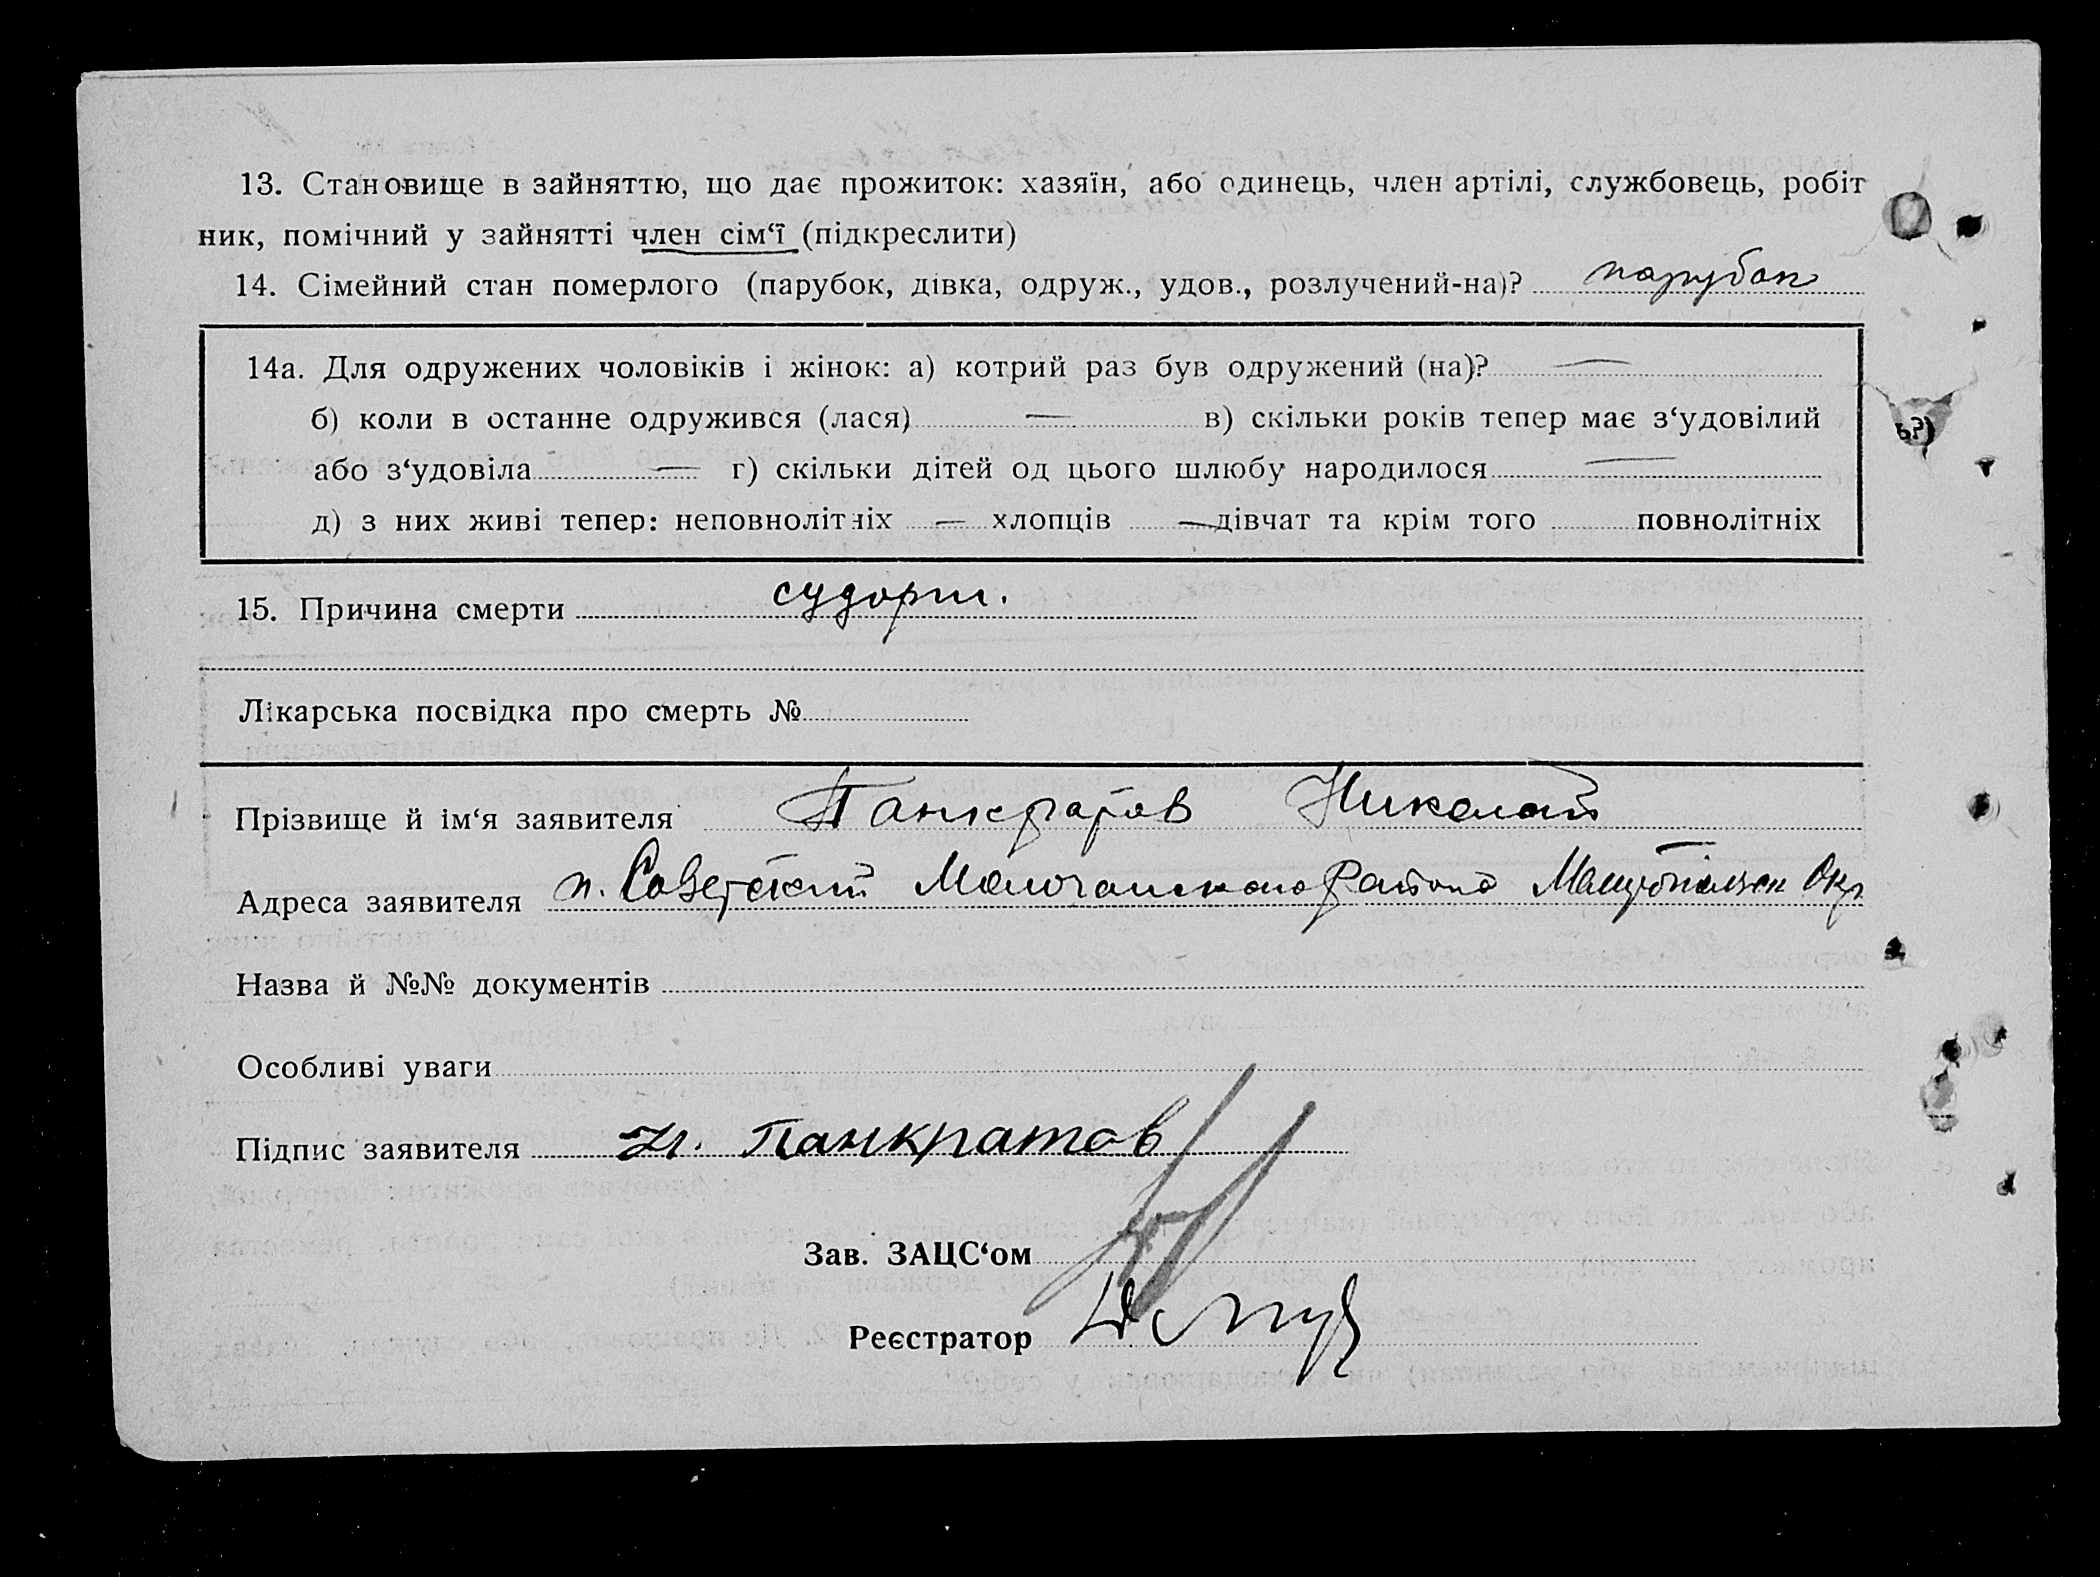 13. Становище в зайняттю, що дає прожиток: хазяїн, або одинець, член артілі, службовець, робіт
ник, помічний у зайнятті член сім‘ї (підкреслити)
14. Сімейний стан померлого (парубок, дівка, одруж., удов., розлучений-на)? парубок
14а. Для одружених чоловіків і жінок: а) котрий раз був одружений (на)? —
б) коли в останне одружився (лася) — в) скільки років тепер має з‘удовілий
або з‘удовіла — г) скільки дітей од цього шлюбу народилося —
д) з них живі тепер: неповнолітніх — хлопців — дівчат та крім того повнолітніх
15. Причина смерти судорги.
Лікарська посвідка про смерть №
Прізвище й ім‘я заявителя Панкратов Николай
Адреса заявителя п. Советский Молочанского района Мелитопольск Окр
Назва й №№ документів
Особливі уваги
Підпис заявителя Н. Панкратов
Зав. ЗАЦС‘ом
Реєстратор